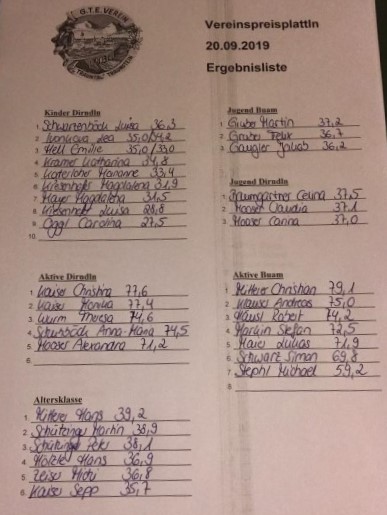 G.T.E. VEREIN
Vereinspreisplattln
20.09.2019
Ergebnisliste
Kinder Dirndln
1. Schwarzenböck Luisa 36,3
2. Lea 35,0/34,2
3. Hell Emilie 35,0/33,0
4. Kramer Katharina 34,8
5. Marianne 33,4
6. Wiesenhofer Magdalena 31,9
7. Mayer Magdalena 31,5
8. Wiesenhofer Luisa 28,8
9. Oggl Carolina 27,5
10.
Jugend Buam
1. Gruber Martin 37,2
2. Gruber Felix 36,7
3. Gaugler Jakob 36,2
Jugend Dirndln
1. Baumgartner Celina 37,5
2. Mooser Claudia 37,1
3. Mooser Carina 37,0
Aktive Dirndln
1. Kaiser Christina 77,6
2. Kaiser Monika 77,4
3. Wurm Theresa 74,6
4. Anna-Maria 74,5
5. Mooser Alexandra 71,2
6.
Aktive Buam
1. Hitterer Christian 79,1
2. Andreas 75,0
3. Häusl Robert 74,2
4. Stefan 72,5
5. Maier Lukas 71,9
6. Schwarz Simon 69,8
7. Stephl Michael 59,2
8.
Altersklasse
1. Hitterer Hans 39,2
2. Schützinger Martin 38,9
3. Schützinger Peter 38,1
4. Hans 36,9
5. Zeiser Michi 36,8
6. Kaiser Sepp 35,7